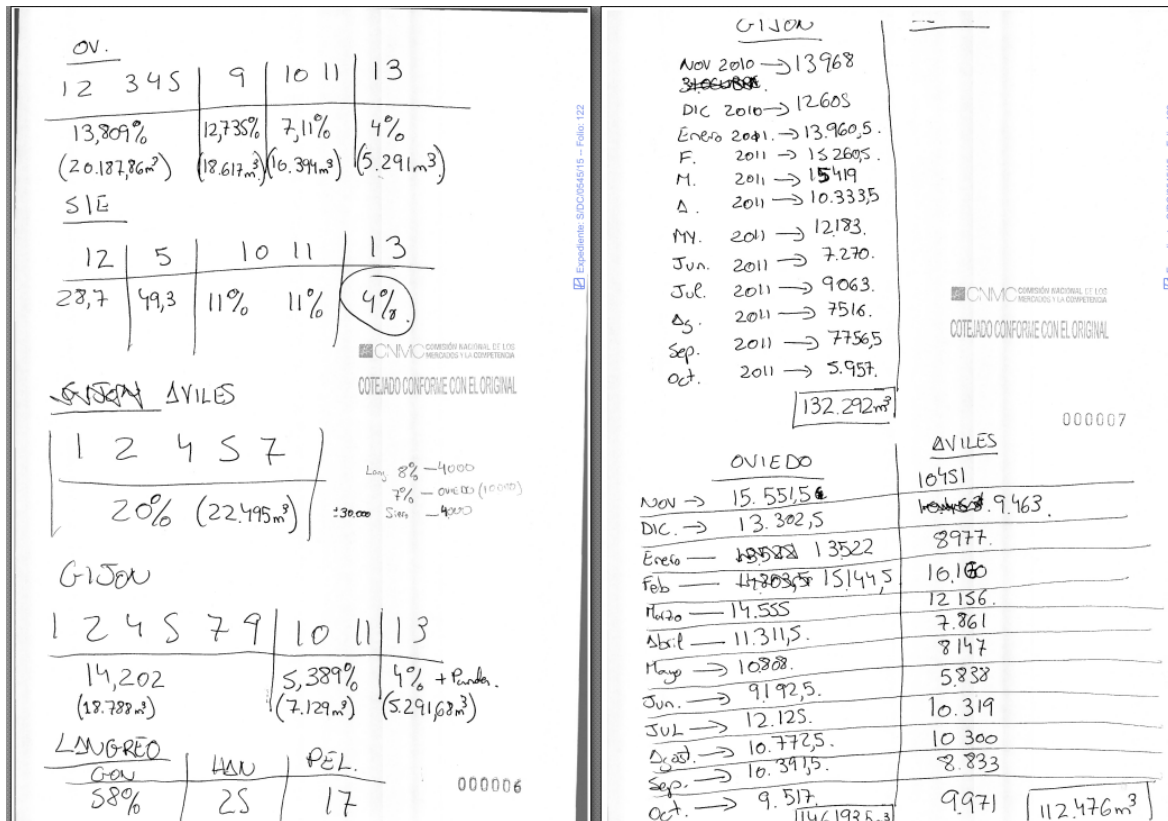 OV.
12 3 4 5 9 10 11 13
13,809% 12,735% 7,11% 4%
(20.187,86m³) (18.617m³) (10.394m³) (5.291m³)
SIE
12 5 10 11 13
28,7 49,3 11% 11% 4%
CNMC COMISIÓN NACIONAL DE LOS MERCADOS Y LA COMPETENCIA
COTEJADO CONFORME CON EL ORIGINAL
GIJON AVILES
1 2 4 5 7
20% (22.495m³)
Lang 8% — 4000
7% — OVIEDO (10000)
±30.000 Siero — 4000
GIJON
1 2 4 5 7 9 10 11 13
14,202 5,389% 4% +
(18.788m³) (7.129m³) (5.291,68m³)
LANGREO
GON HAN PEL.
58% 25 17
000006
Expediente: S/DC/0545/15 – Folio: 122
GIJON
NOV 2010 → 13968
DIC 2010 → 12605
Enero 2011. → 13.960,5.
F. 2011 → 15260,5.
M. 2011 → 15419
A. 2011 → 10.333,5
MY. 2011 → 12.183.
Jun. 2011 → 7.270.
Jul. 2011 → 9063.
Ag. 2011 → 7516.
Sep. 2011 → 7756,5
Oct. 2011 → 5.957.
132.292m³
CNMC COMISIÓN NACIONAL DE LOS MERCADOS Y LA COMPETENCIA
COTEJADO CONFORME CON EL ORIGINAL
000007
OVIEDO AVILES
Nov → 15.551,5 10451
DIC. → 13.302,5 9.463.
Enero — 13522 8977.
Feb — 15144,5 10.160
Marzo — 14.555 12 156.
Abril — 11.311,5. 7.861
Mayo → 10808. 8147
Jun. → 9192,5. 5.838
JUL → 12.125. 10.319
Agost. → 10.772,5. 10 300
Sep. → 10.391,5. 8.833
Oct. → 9.517. 9.971
112.476m³